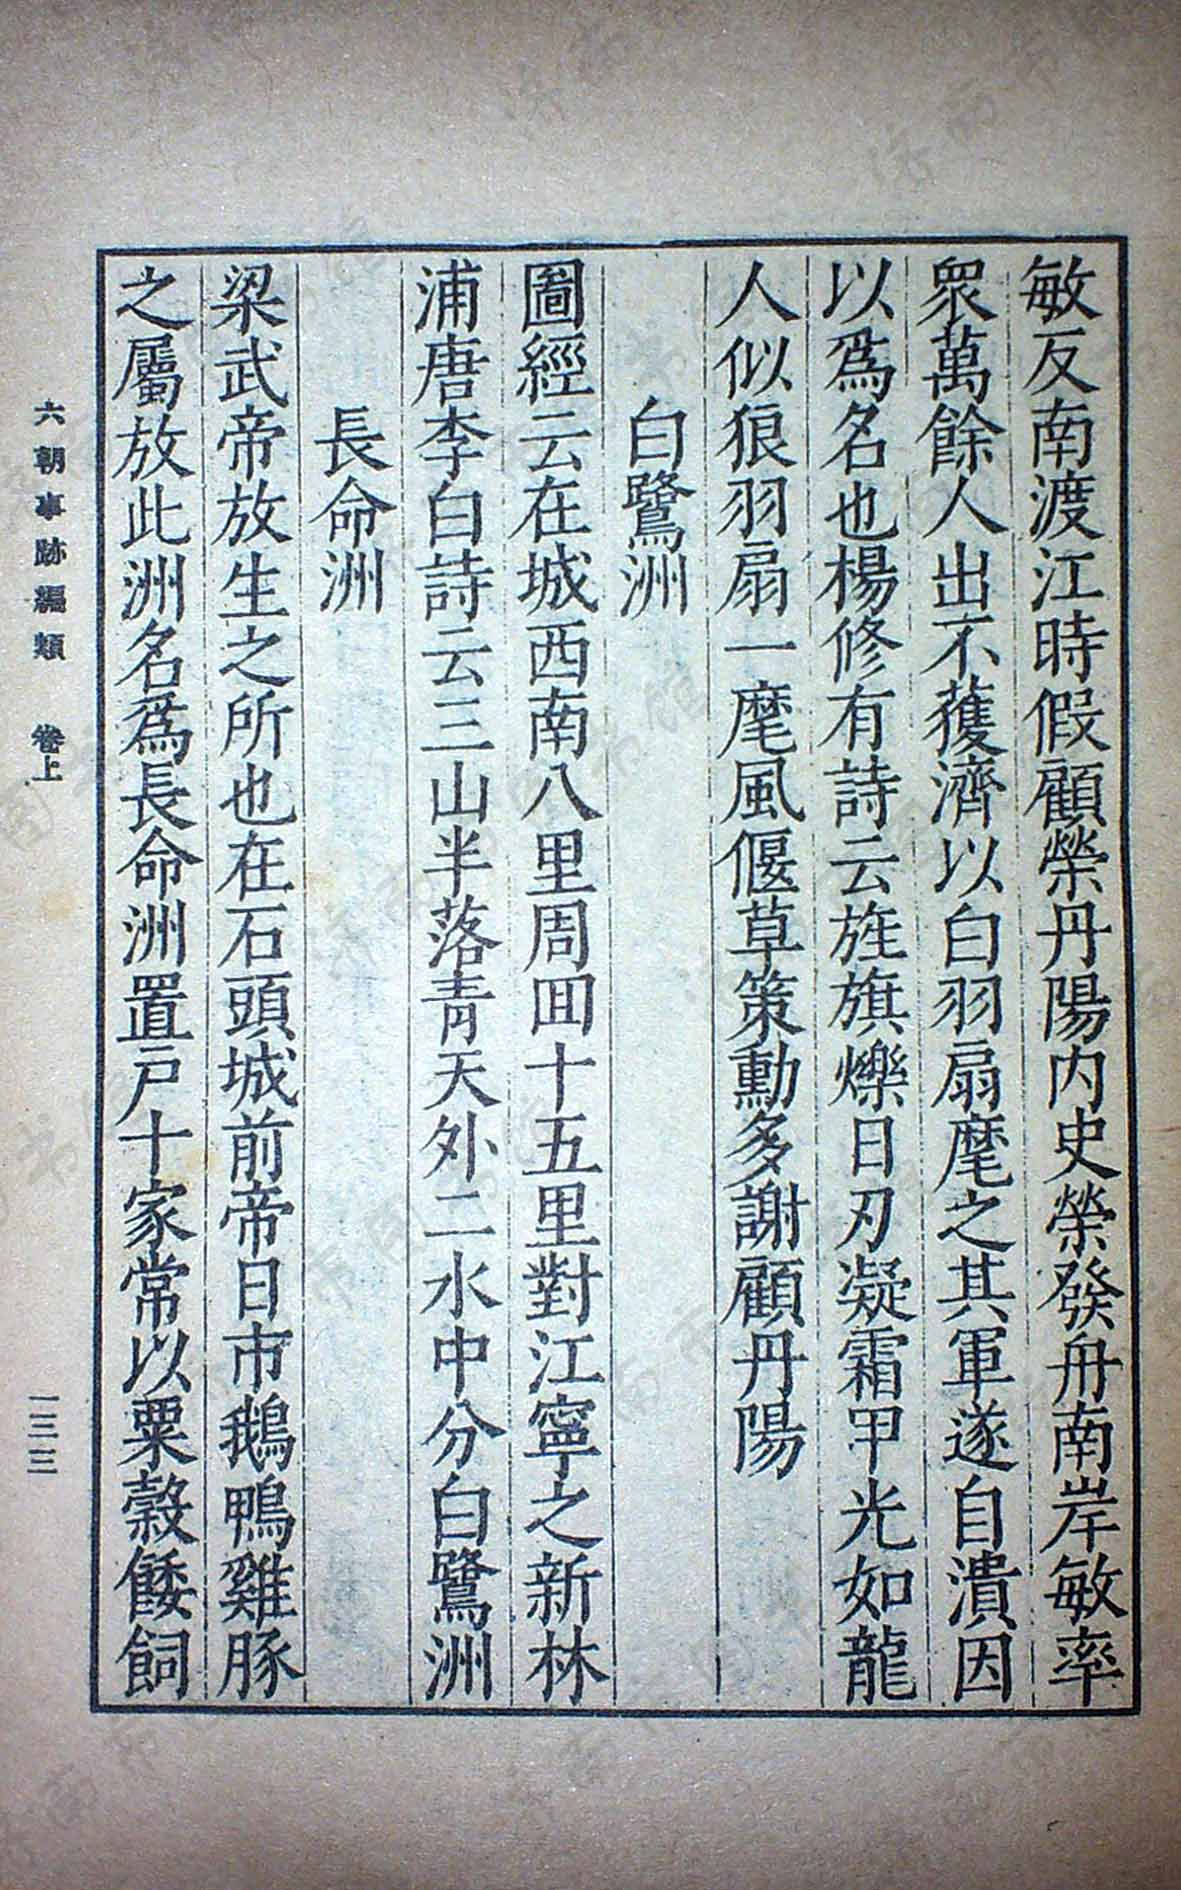 敏反南渡江時假顧榮丹陽内史榮發舟南岸敏率
眾萬餘人出不獲濟以白羽扇麾之其軍遂自潰因
以爲名也楊修有詩云旌旗爍日刃凝霜甲光如龍
人似狼羽扇一麾風偃草策勳多謝顧丹陽
白鷺洲
圖經云在城西南八里周回十五里對江寧之新林
浦唐李白詩云三山半落青天外二水中分白鷺洲
長命洲
梁武帝放生之所也在石頭城前帝日市鵝鴨雞豚
之屬放此洲名爲長命洲置戶十家常以粟穀餧飼
六朝事跡編類 卷上
一三三